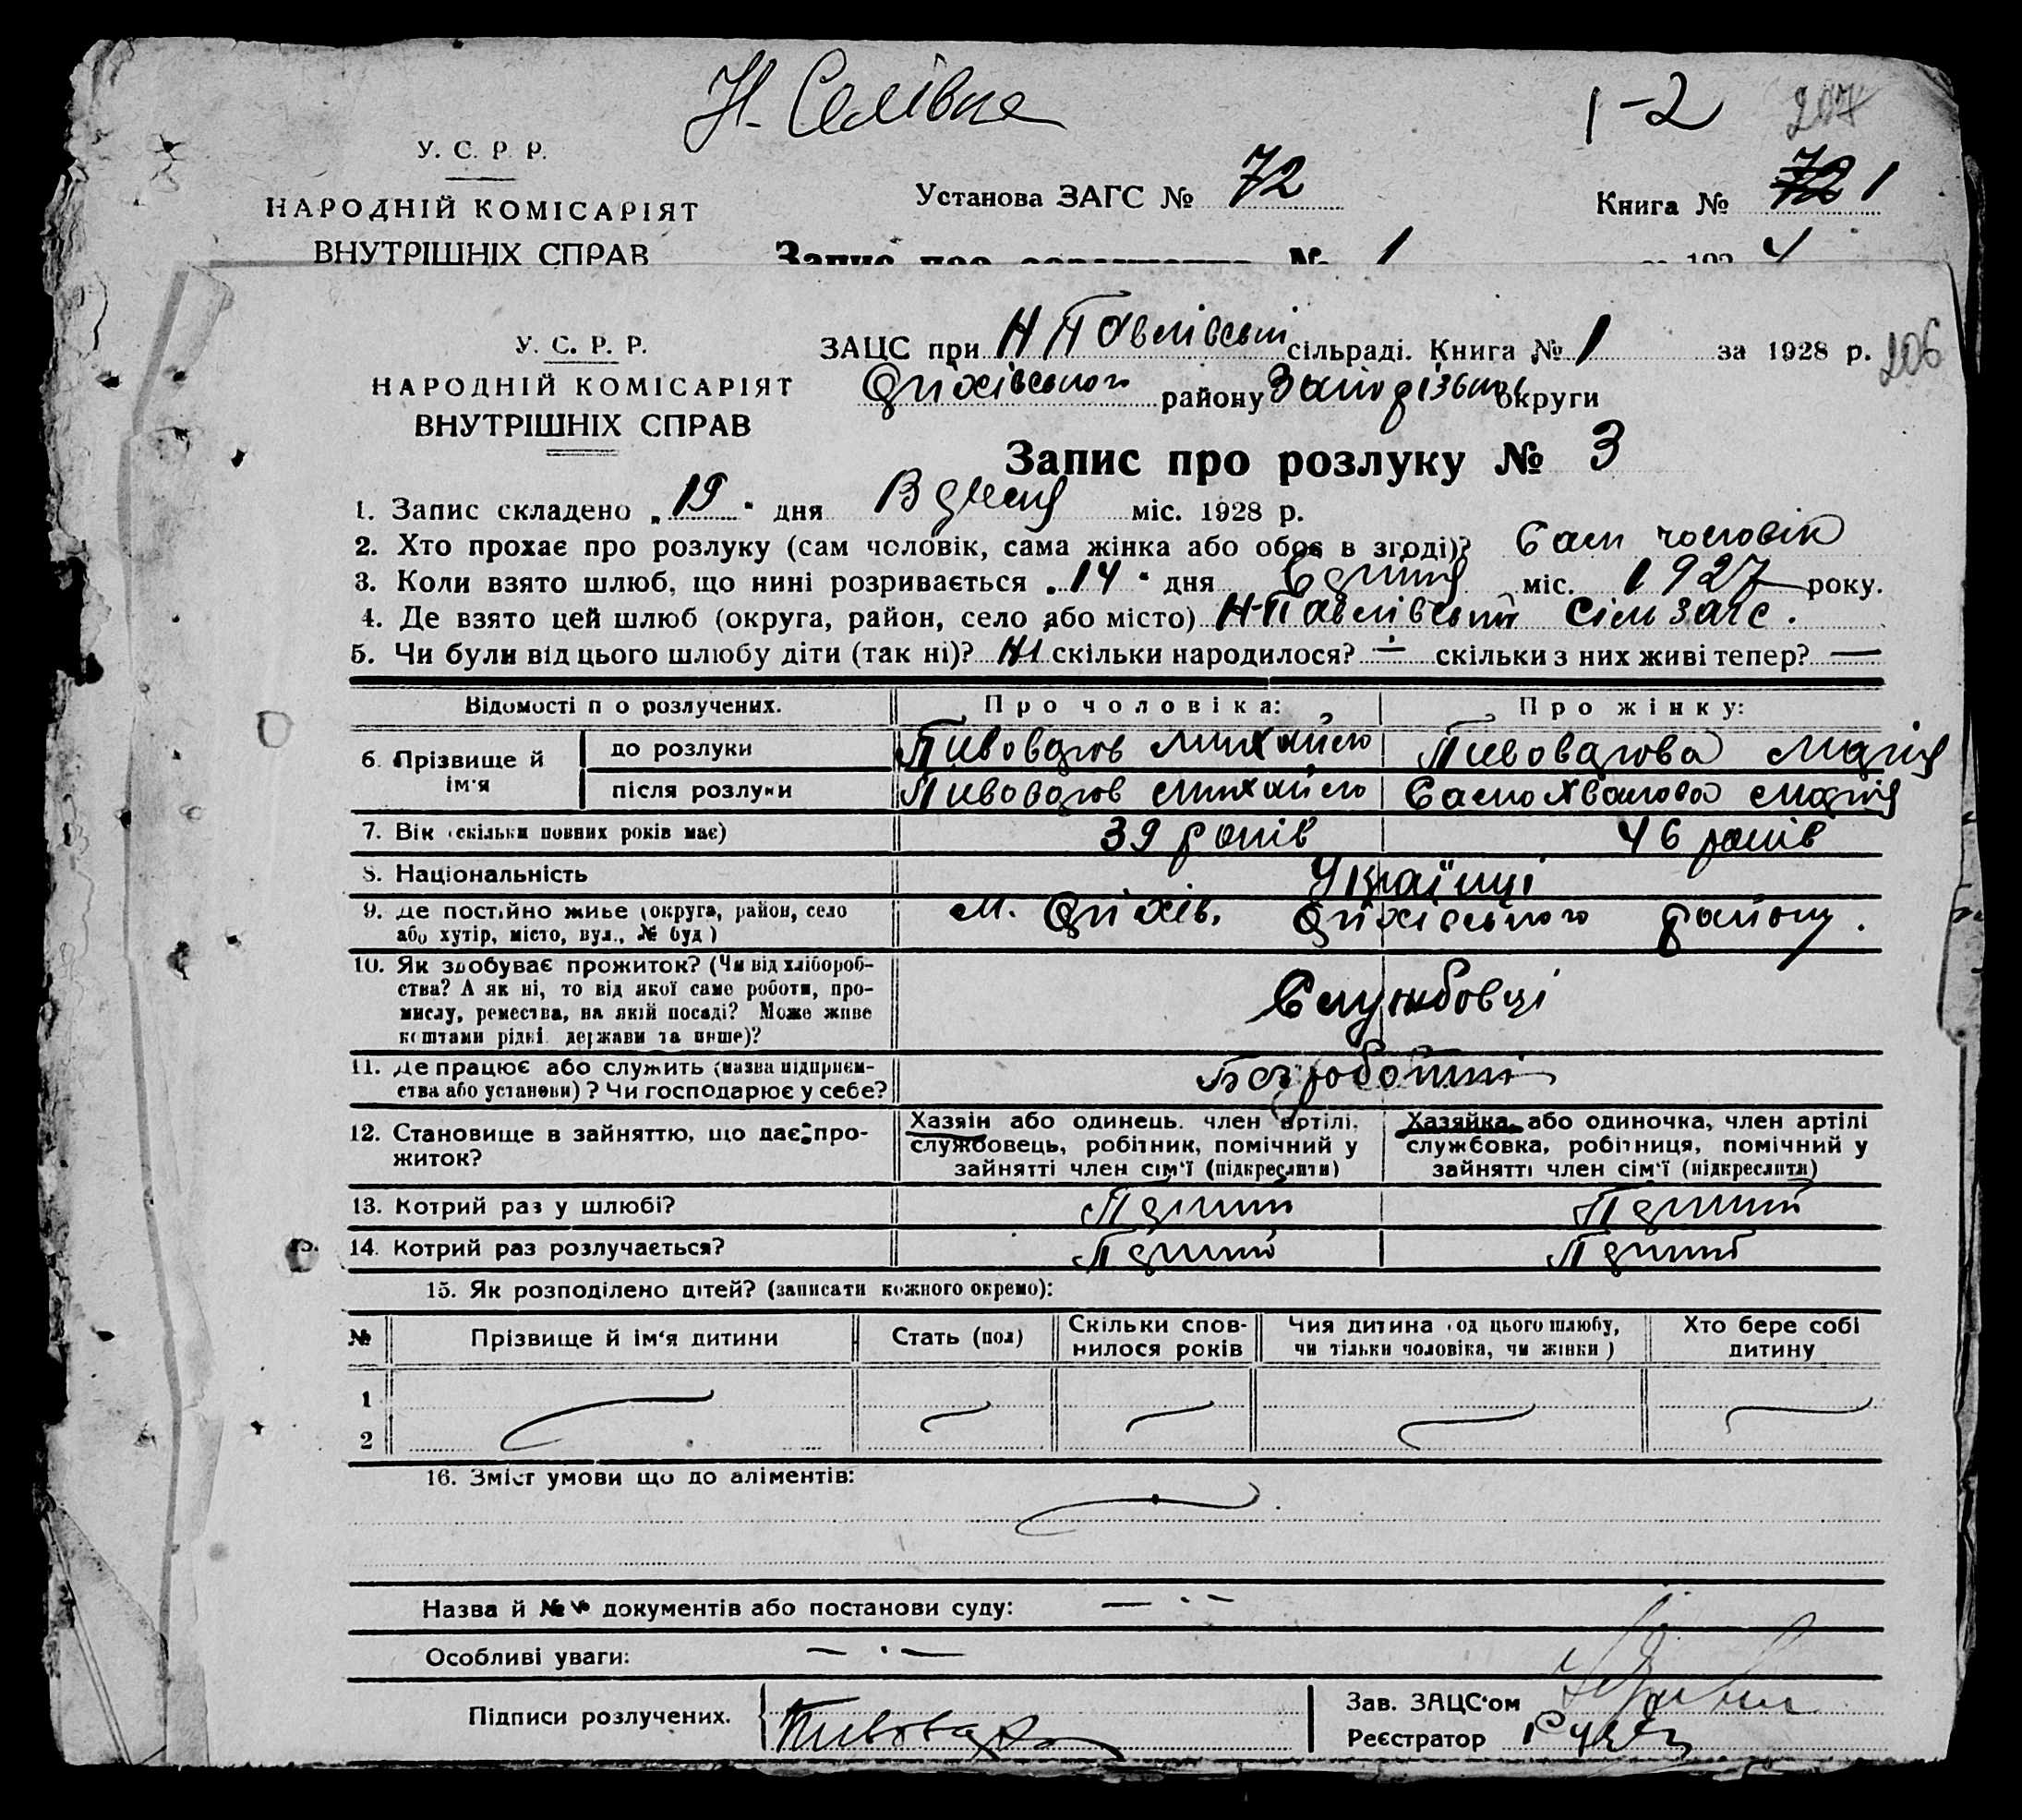 Н. Селівка
1-2
207
У. С. Р. Р.
НАРОДНІЙ КОМІСАРІЯТ
ВНУТРІШНІХ СПРАВ
Установа ЗАГС № 72
Книга № 72 1
Запис про № 1
192 4
У. С. Р. Р.
НАРОДНІЙ КОМІСАРІЯТ
ВНУТРІШНІХ СПРАВ
ЗАЦС при Н Павлівській сільраді. Книга № 1 за 1928 р.
206
Оріхівського району Запорізької округи
Запис про розлуку № 3
1. Запис складено „19" дня міс. 1928 р.
2. Хто прохає про розлуку (сам чоловік, сама жінка або обоє в згоді)? Сам чоловік
3. Коли взято шлюб, що нині розривається „14" дня Серпня міс. 1927 року.
4. Де взято цей шлюб (округа, район, село або місто) Н-Павлівський Сільзагс.
5. Чи були від цього шлюбу діти (так ні)? Ні скільки народилося? — скільки з них живі тепер? —
Відомості п о розлучених.
Про чоловіка:
Про жінку:
6. Прізвище й ім'я
до розлуки
Пивоваров Михайло
Пивоварова Марія
після розлуки
Пивоваров Михайло
Самохвалова Марія
7. Вік (скільки повних років має)
39 років
46 років
8. Національність
Українці
9. Де постійно живе (округа, район, село
або хутір, місто, вул., № буд)
м. Оріхів, Оріхівського району.
10. Як здобуває прожиток? (Чи від хлібороб-
ства? А як ні, то від якої саме роботи, про-
мислу, ремества, на якій посаді? Може живе
коштами рідні, держави та инше)?
Службовці
11. Де працює або служить (назва підприєм-
ства або установи)? Чи господарює у себе?
Безробітні
12. Становище в зайняттю, що дає про-
житок?
Хазяїн або одинець, член артілі,
службовець, робітник, помічний у
зайнятті член сім'ї (підкреслити)
Хазяйка, або одиночка, член артілі
службовка, робітниця, помічний у
зайнятті член сім'ї (підкреслити)
13. Котрий раз у шлюбі?
Перший
Перший
14. Котрий раз розлучається?
Перший
Перший
15. Як розподілено дітей? (записати кожного окремо):
№
Прізвище й ім'я дитини
Стать (пол)
Скільки спов-
нилося років
Чия дитина (од цього шлюбу,
чи тільки чоловіка, чи жінки)
Хто бере собі
дитину
1
2
16. Зміст умови що до аліментів:
Назва й №№ документів або постанови суду: — · —
Особливі уваги: — · —
Підписи розлучених.
Зав. ЗАЦС'ом
Реєстратор